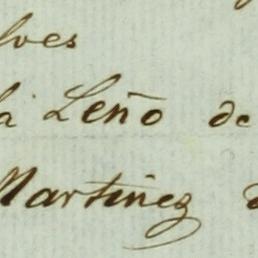 lves
la Leño de
Martinez